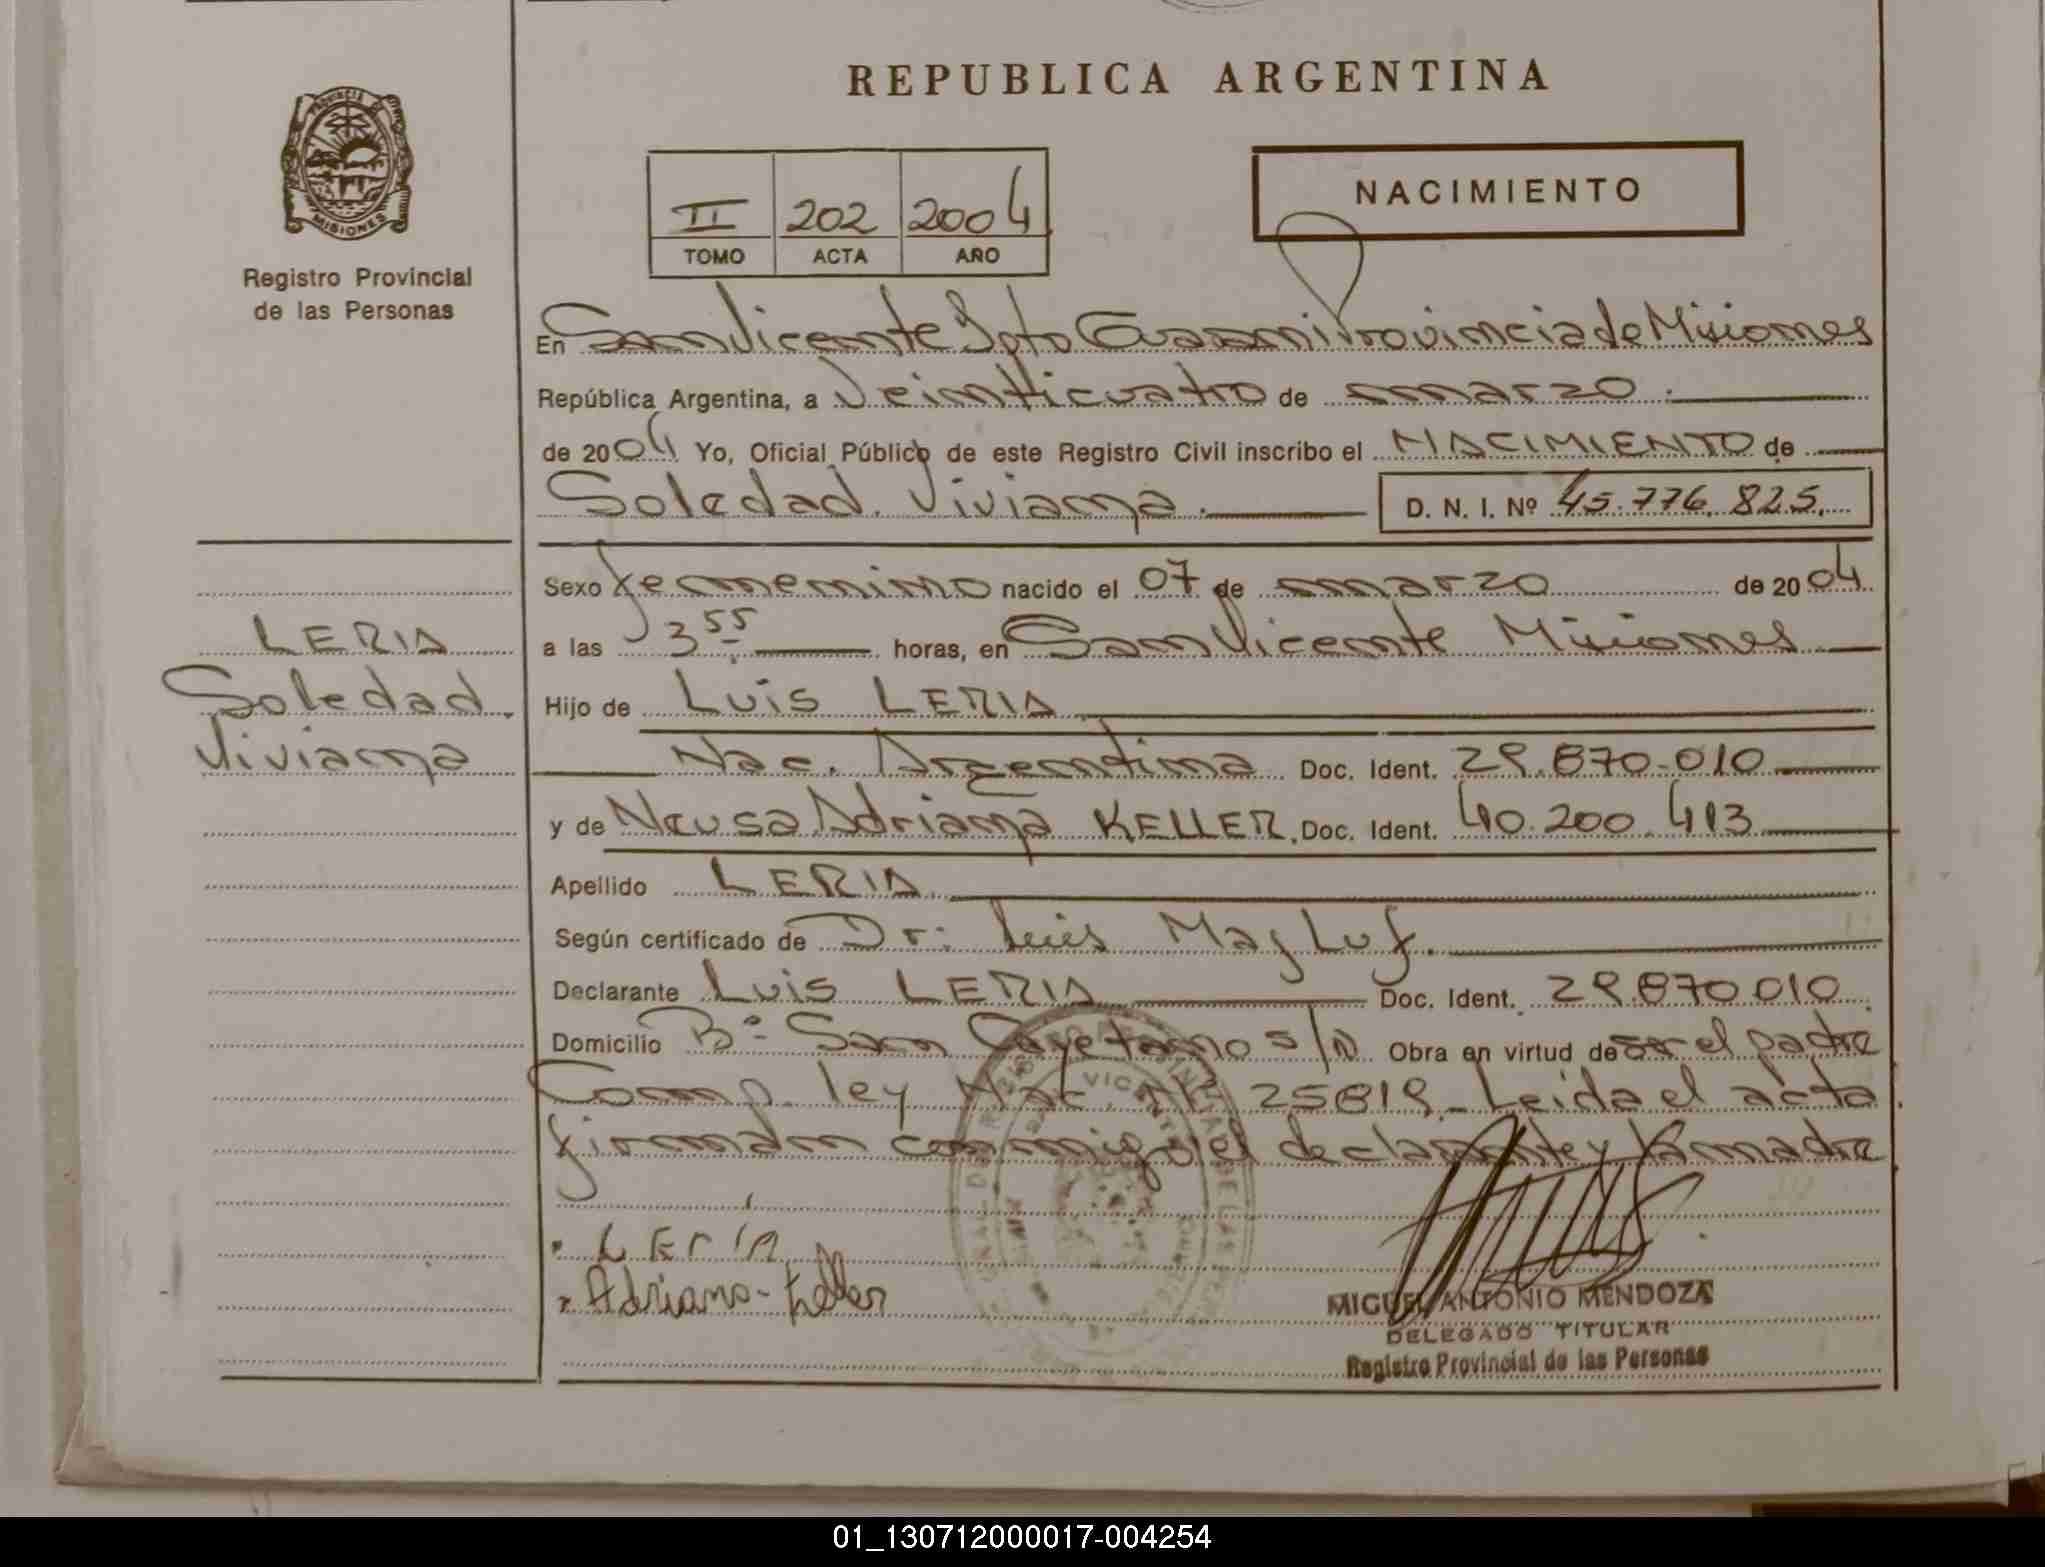 REPUBLICA ARGENTINA
PROVINCIA DE
MISIONES
Registro Provincial
de las Personas
II 202 2004
TOMO ACTA AÑO
NACIMIENTO
En San Vicente Dpto Guarani Provincia de Misiones
República Argentina, a Veinticuatro de marzo.
de 2004 Yo, Oficial Público de este Registro Civil inscribo el NACIMIENTO de
Soledad Viviana. D. N. I. Nº 45.776.825.
Sexo femenino nacido el 07 de marzo de 2004
a las 3 55 horas, en San Vicente Misiones
LERIA
Soledad
Viviana
Hijo de Luis LERIA
Nac. Argentina Doc. Ident. 29.870.010
y de Neusa Adriana KELLER. Doc. Ident. 40.200.413
Apellido LERIA
Según certificado de Dr. Luis Majluf.
Declarante Luis LERIA Doc. Ident. 29.870.010
Domicilio Bº San Cayetano s/n Obra en virtud de ser el padre
Comp. ley Nac. Nº 25819 - Leida el acta
firman conmigo el declarante y la madre
LEríA
Adriana - Keller
MIGUEL ANTONIO MENDOZA
DELEGADO TITULAR
Registro Provincial de las Personas
01_130712000017-004254